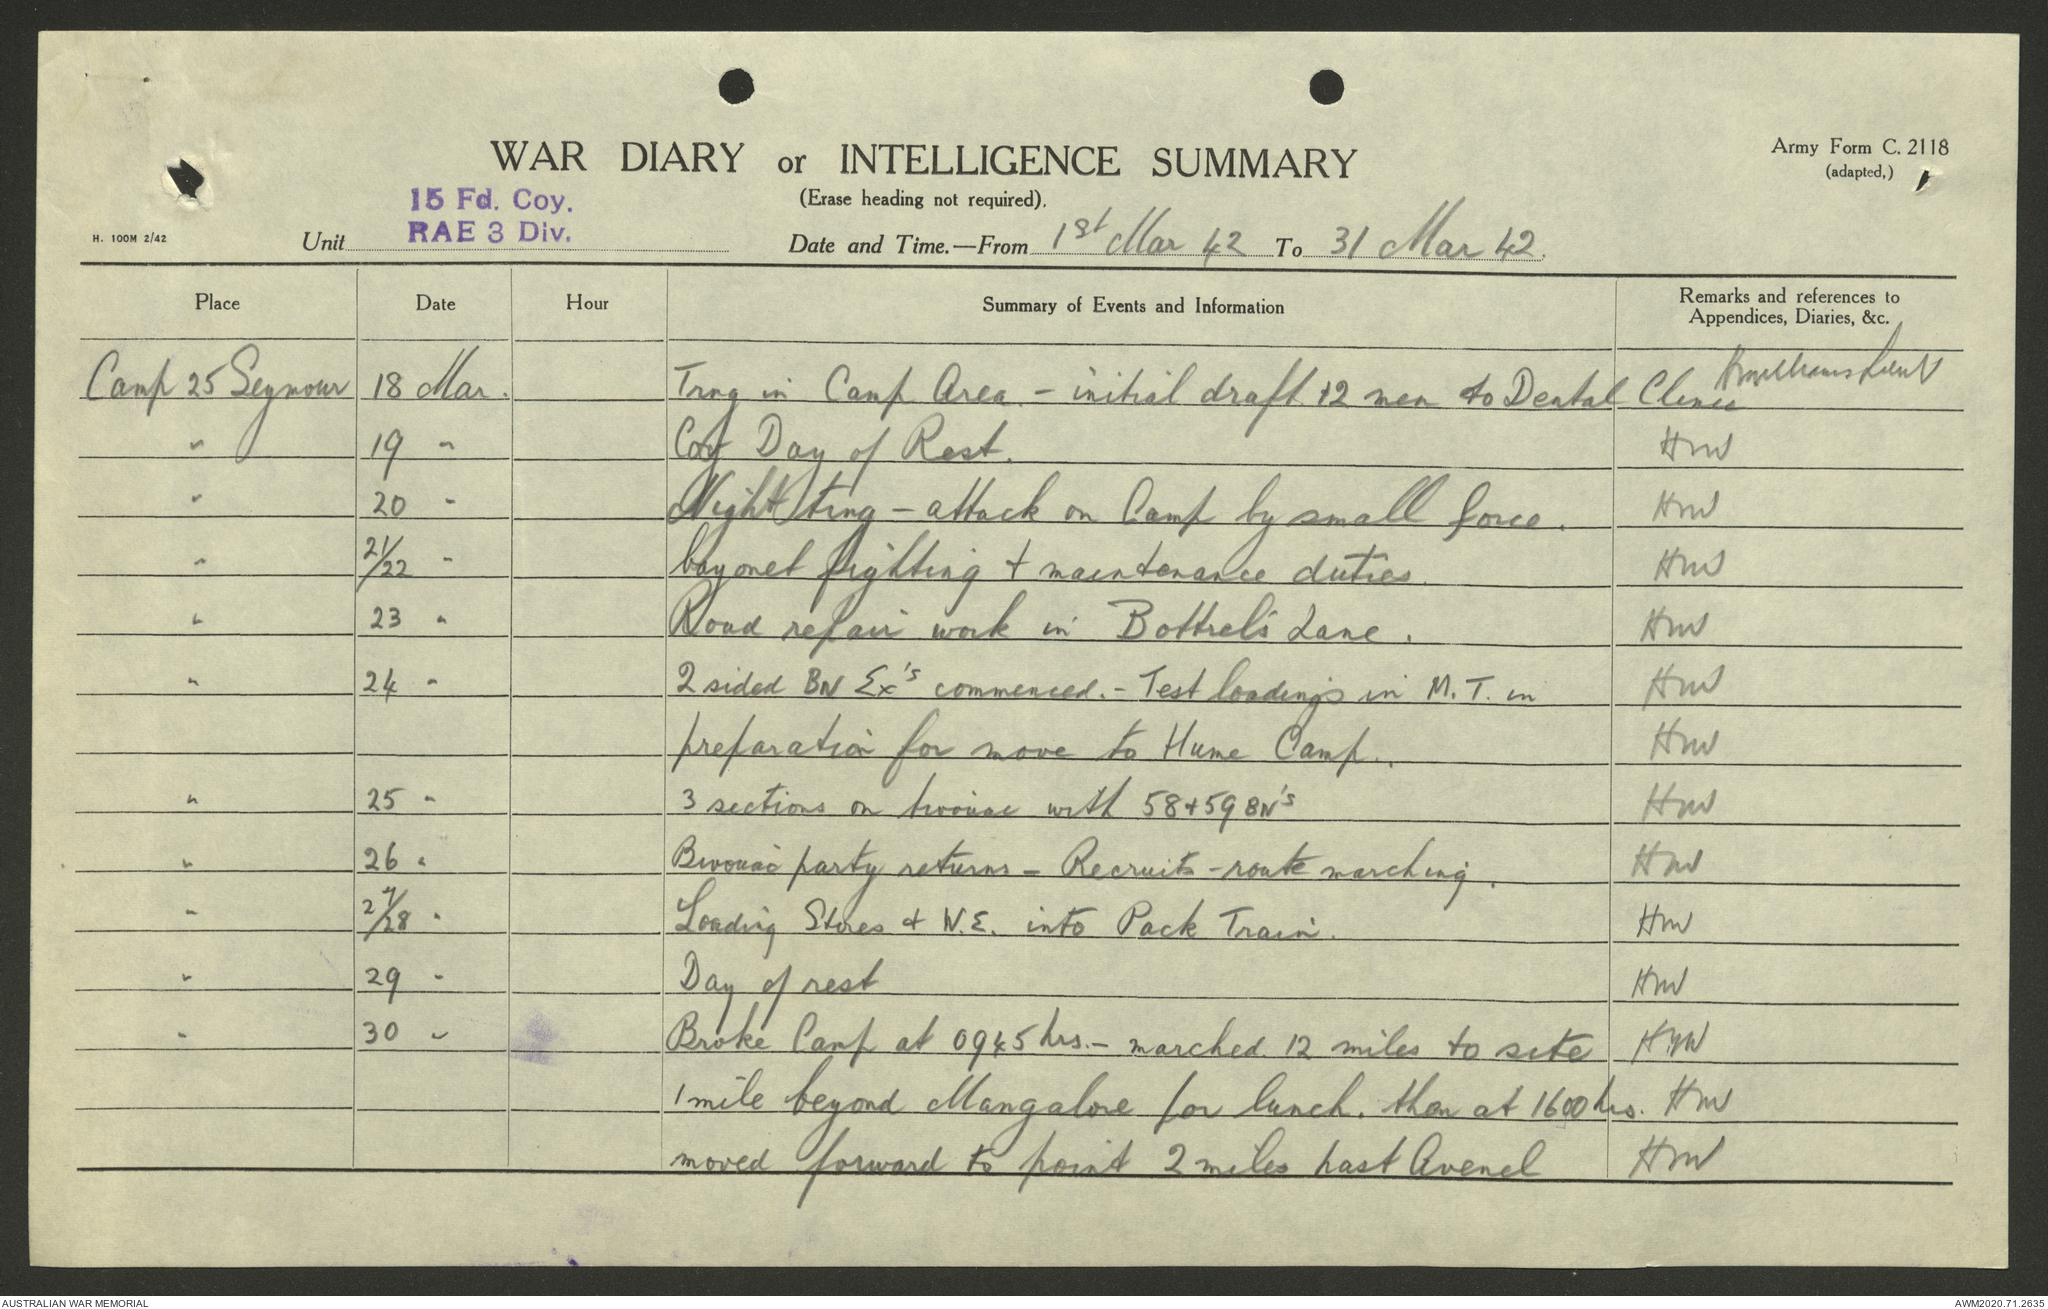 WAR DIARY or INTELLIGENCE SUMMARY
Army Form C. 2118
(adapted,)
(Erase heading not required).
15 Fd. Coy.
RAE 3 Div.
H. 100M 2/42
Unit
Date and Time.—From 1st Mar 42 To 31 Mar 42.
Place Date Hour Summary of Events and Information Remarks and references to
Appendices, Diaries, &c.
Camp 25 Seymour 18 Mar. Trng in Camp Area - initial draft 12 men to Dental Clinic HWilliams Lieut
" 19 " Coy Day of Rest. HW
" 20 " Night trng - attack on Camp by small force. HW
" 21/22 " bayonet fighting + maintenance duties. HW
" 23 " Road repair work in Bottrel's Lane. HW
" 24 " 2 sided BN Ex's commenced. - Test loadings in M.T. in HW
preparation for move to Hume Camp.. HW
" 25 " 3 sections on bivouac with 58 + 59 BN's HW
" 26 " Bivouac party returns - Recruits - route marching. HW
" 27/28 " Loading Stores + W.E. into Pack Train. HW
" 29 " Day of rest HW
" 30 " Broke Camp at 0945 hrs. - marched 12 miles to site HW
1 mile beyond Mangalore for lunch. then at 1600 hrs. HW
moved forward to point 2 miles past Avenel HW
AUSTRALIAN WAR MEMORIAL
AWM2020.71.2635